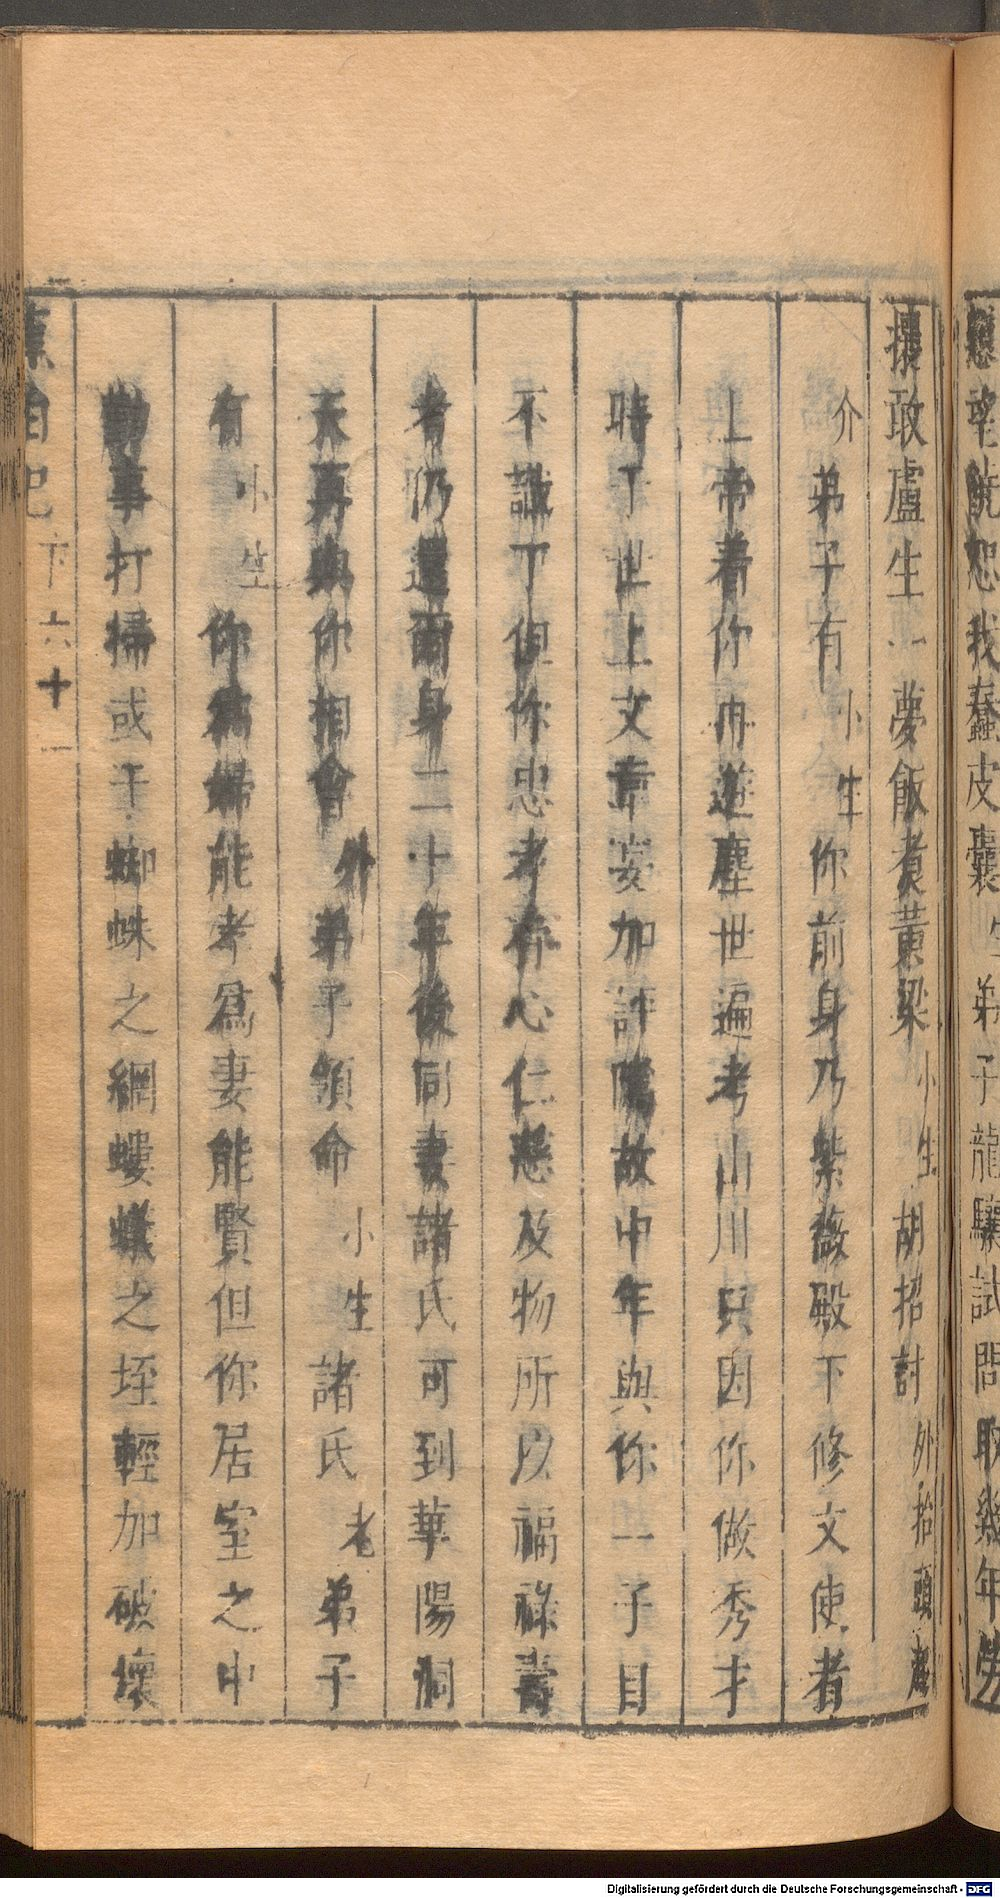 懇望能恕我蠢皮囊 生 弟子龍驤試問取幾年勞
攘敢盧生一夢飯煮黃粱 小生 胡招討 外抬頭起
介 弟子有 小生 你前身乃紫薇殿下修文使者
上帝着你冉遊塵世遍考山川只因你做秀才
時了世上文章妄加評隲故中年與你一子目
不識丁但你忠孝存心仁慈及物所以福祿壽
者仍還爾身二十年後同妻諸氏可到華陽洞
天再與你相會 外 弟子領命 小生 諸氏 老 弟子
有 小生 你為婦能孝爲妻能賢但你居室之中
勤事打掃或干蜘蛛之網螻蟻之垤輕加破壞
下 六十一
Digitalisierung gefördert durch die Deutsche Forschungsgemeinschaft - DFG